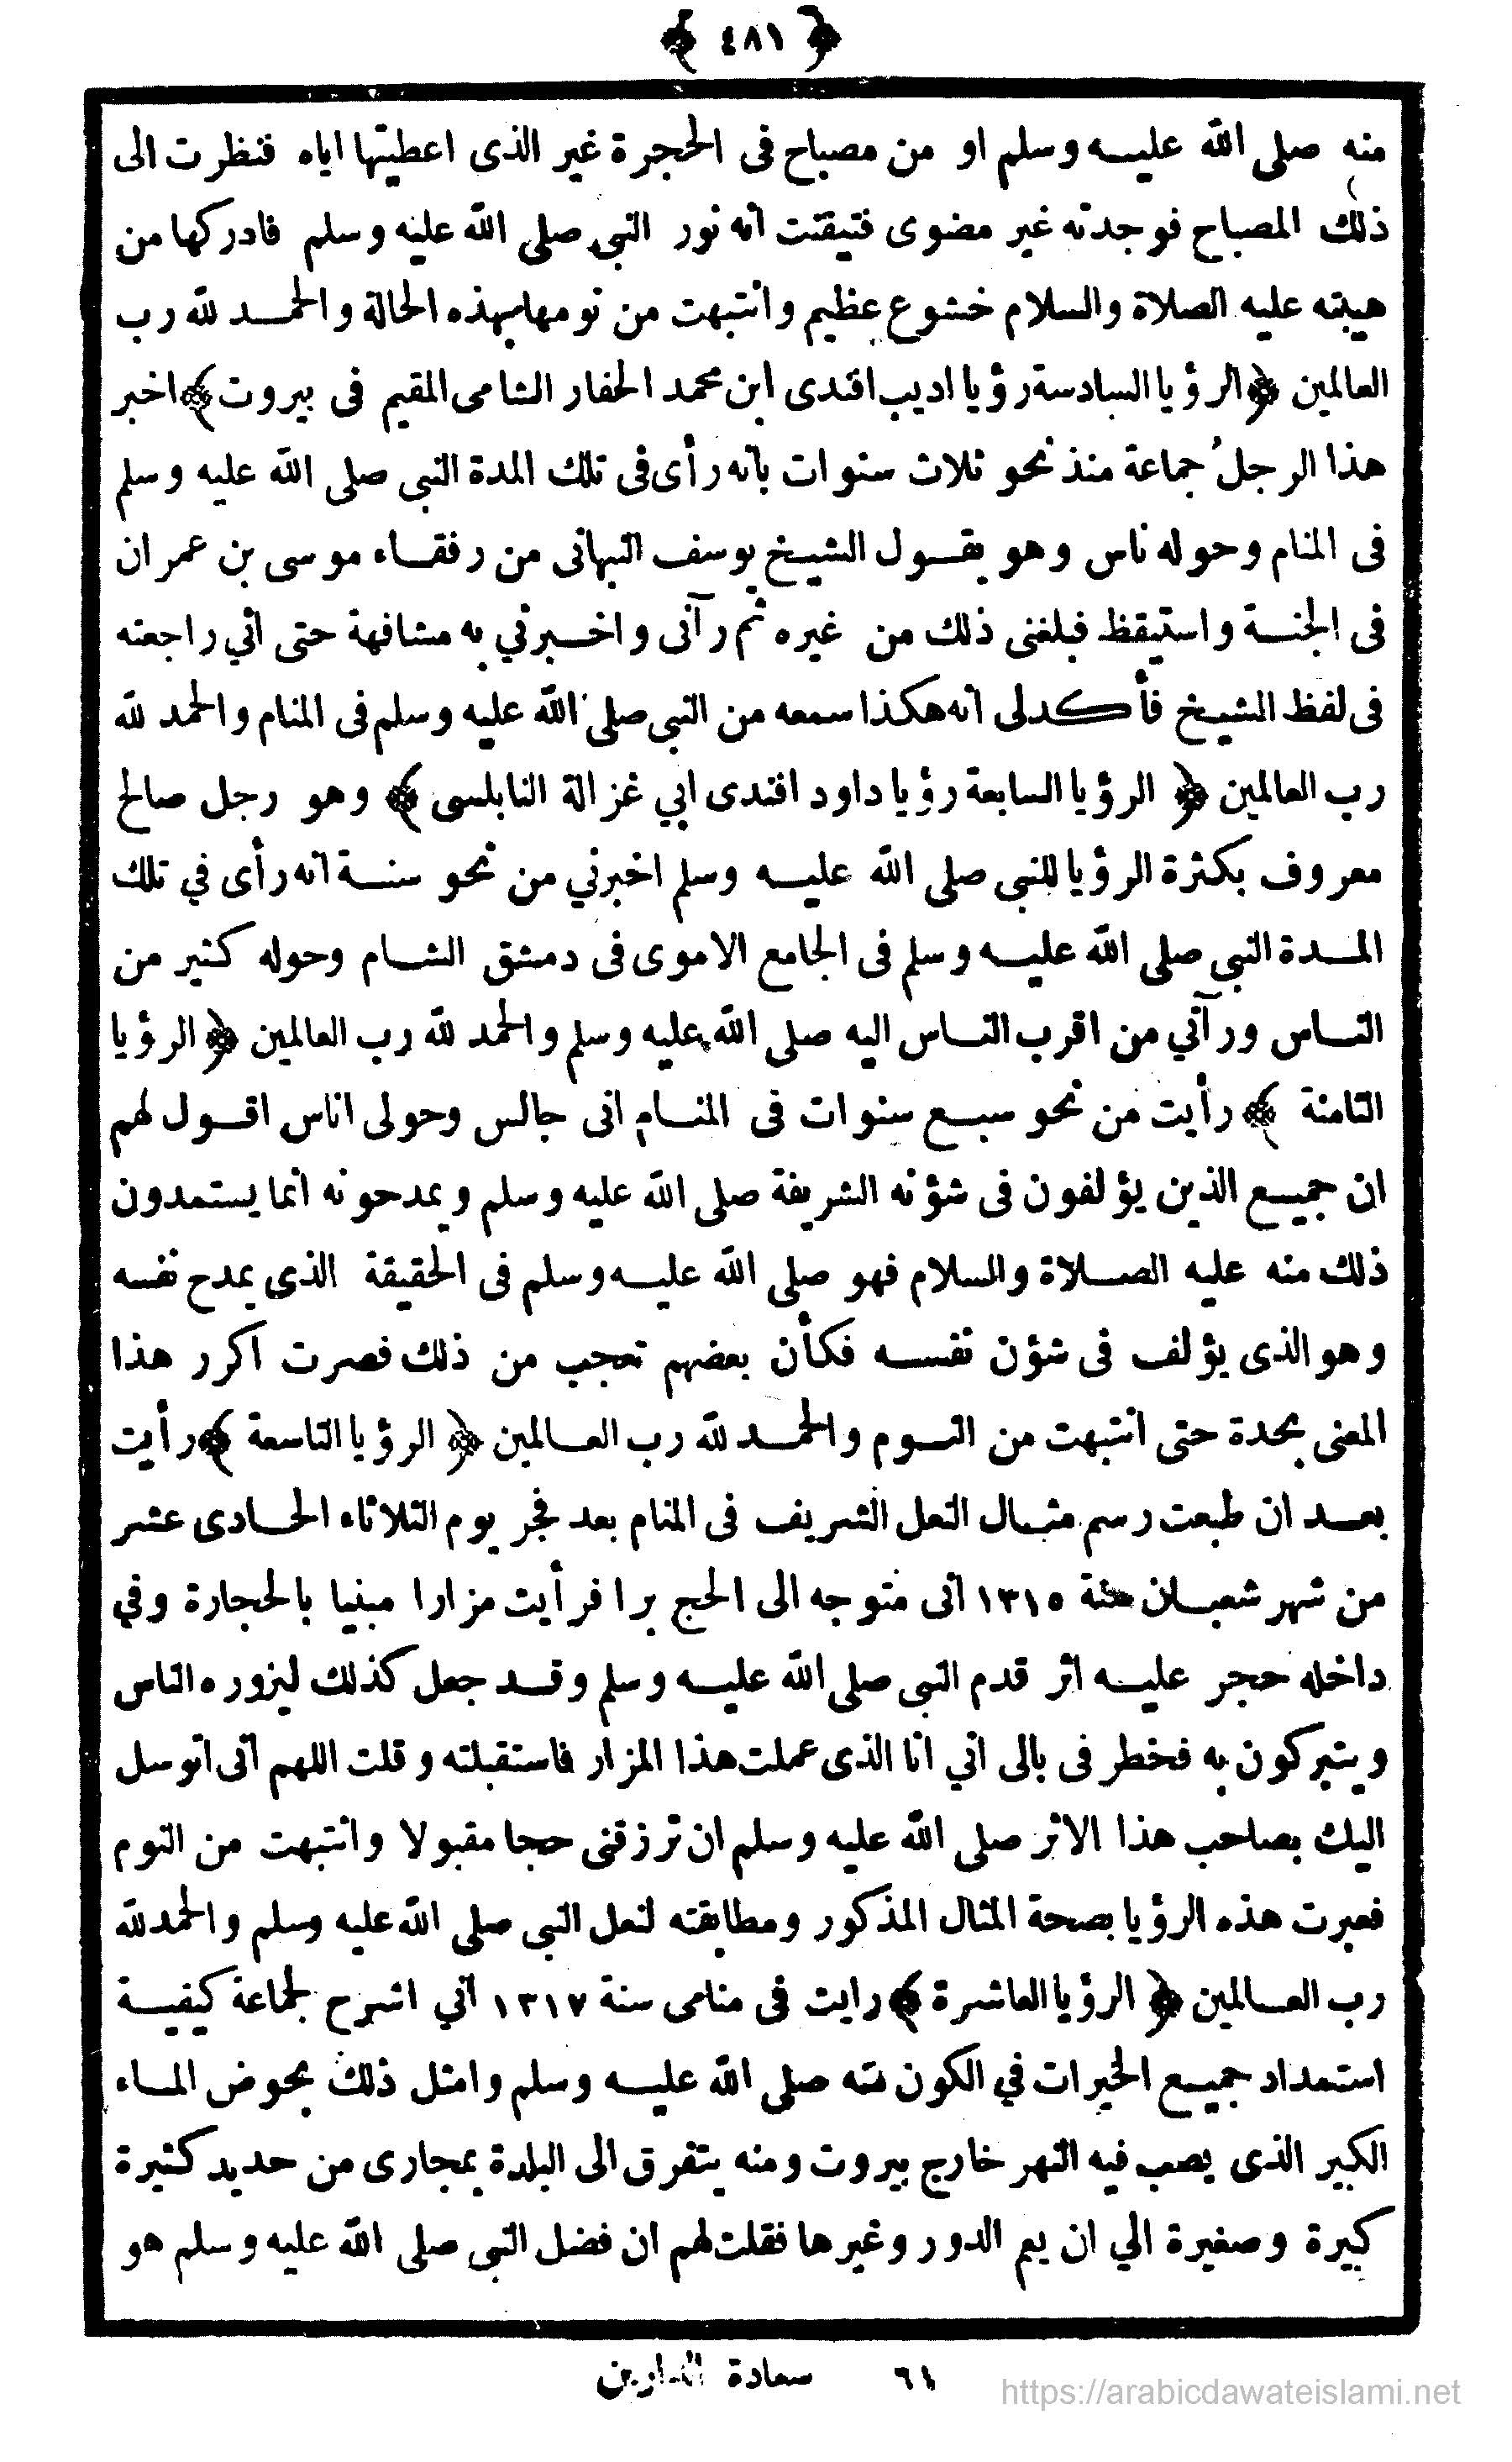 ﴿ ٤٨١ ﴾
منه صلى الله عليه وسلم او من مصباح فى الحجرة غير الذى اعطيتها اياه فنظرت الى
ذلك المصباح فوجدته غير مضوى فتيقنت انه نور النبي صلى الله عليه وسلم فادركها من
هيبته عليه الصلاة والسلام خشوع عظيم وانتبهت من نومها بهذه الحالة والحمد لله رب
العالمين ﴿الرؤيا السادسة رؤيا اديب افندى ابن محمد الحفار الشامى المقيم فى بيروت﴾ اخبر
هذا الرجلُ جماعة منذ نحو ثلاث سنوات بانه رأى فى تلك المدة النبي صلى الله عليه وسلم
فى المنام وحوله ناس وهو يقول الشيخ يوسف النبهانى من رفقاء موسى بن عمران
فى الجنة واستيقظ فبلغنى ذلك من غيره ثم رآنى واخبرني به مشافهة حتى اني راجعته
فى لفظ الشيخ فأكد لى انه هكذا سمعه من النبي صلى الله عليه وسلم فى المنام والحمد لله
رب العالمين ﴿ الرؤيا السابعة رؤيا داود افندى ابي غزالة النابلسى ﴾ وهو رجل صالح
معروف بكثرة الرؤيا للنبى صلى الله عليه وسلم اخبرني من نحو سنة انه رأى في تلك
المدة النبي صلى الله عليه وسلم فى الجامع الاموى فى دمشق الشام وحوله كثير من
الناس ورآني من اقرب الناس اليه صلى الله عليه وسلم والحمد لله رب العالمين ﴿الرؤيا
الثامنة ﴾ رأيت من نحو سبع سنوات فى المنام انى جالس وحولى اناس اقول لهم
ان جميع الذين يؤلفون فى شؤنه الشريفة صلى الله عليه وسلم ويمدحونه انما يستمدون
ذلك منه عليه الصلاة والسلام فهو صلى الله عليه وسلم فى الحقيقة الذى يمدح نفسه
وهو الذى يؤلف فى شؤن نفسه فكأن بعضهم تعجب من ذلك فصرت اكرر هذا
المعنى بحدة حتى انتبهت من النوم والحمد لله رب العالمين ﴿ الرؤيا التاسعة ﴾ رأيت
بعد ان طبعت رسم مثال النعل الشريف فى المنام بعد فجر يوم الثلاثاء الحادى عشر
من شهر شعبان سنة ١٣١٥ انى متوجه الى الحج برا فرأيت مزارا مبنيا بالحجارة وفي
داخله حجر عليه اثر قدم النبي صلى الله عليه وسلم وقد جعل كذلك ليزوره الناس
ويتبركون به فخطر فى بالى اني انا الذى عملت هذا المزار فاستقبلته وقلت اللهم انى اتوسل
اليك بصاحب هذا الاثر صلى الله عليه وسلم ان ترزقنى حجا مقبولا وانتبهت من النوم
فعبرت هذه الرؤيا بصحة المثال المذكور ومطابقته لنعل النبي صلى الله عليه وسلم والحمد لله
رب العالمين ﴿ الرؤيا العاشرة ﴾ رايت فى منامى سنة ١٣١٧ اني اشرح لجماعة كيفية
استمداد جميع الخيرات في الكون منه صلى الله عليه وسلم وامثل ذلك بحوض الماء
الكبير الذى يصب فيه النهر خارج بيروت ومنه يتفرق الى البلدة بمجارى من حديد كثيرة
كبيرة وصغيرة الي ان يعم الدور وغيرها فقلت لهم ان فضل النبى صلى الله عليه وسلم هو
٦١ سعادة الدارين
https://arabicdawateislami.net